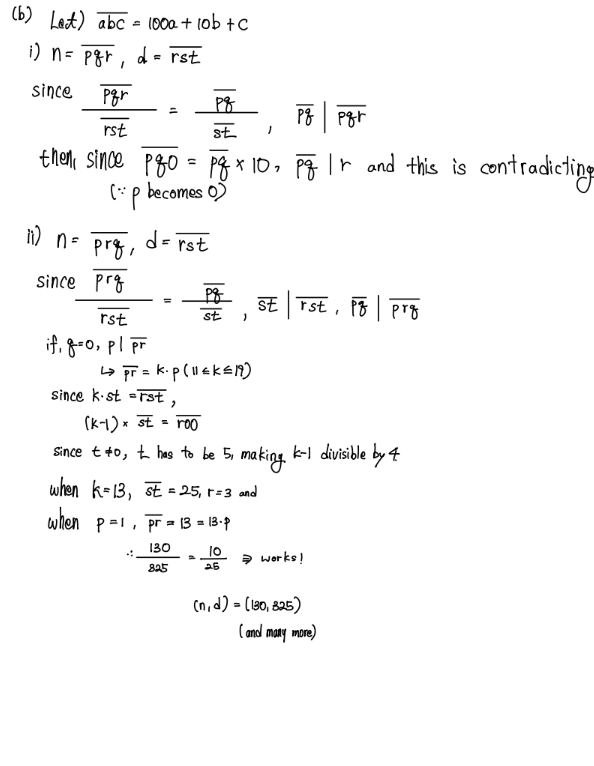 (b) Let) abc = 100a + 10b + c
i) n = pqr, d = rst
since pqr/rst = pq/st, pq | pqr
then, since pq0 = pq × 10, pq | r and this is contradicting
(∵ p becomes 0)
ii) n = prq, d = rst
since prq/rst = pq/st, st | rst, pq | prq
if, q=0, p | pr
↳ pr = k·p (11≤k≤19)
since k·st = rst,
(k-1) × st = r00
since t≠0, t has to be 5, making k-1 divisible by 4
when k=13, st = 25, r=3 and
when p=1, pr = 13 = 13·p
∴ 130/325 = 10/25 ⇒ works!
(n,d) = (130, 325)
(and many more)